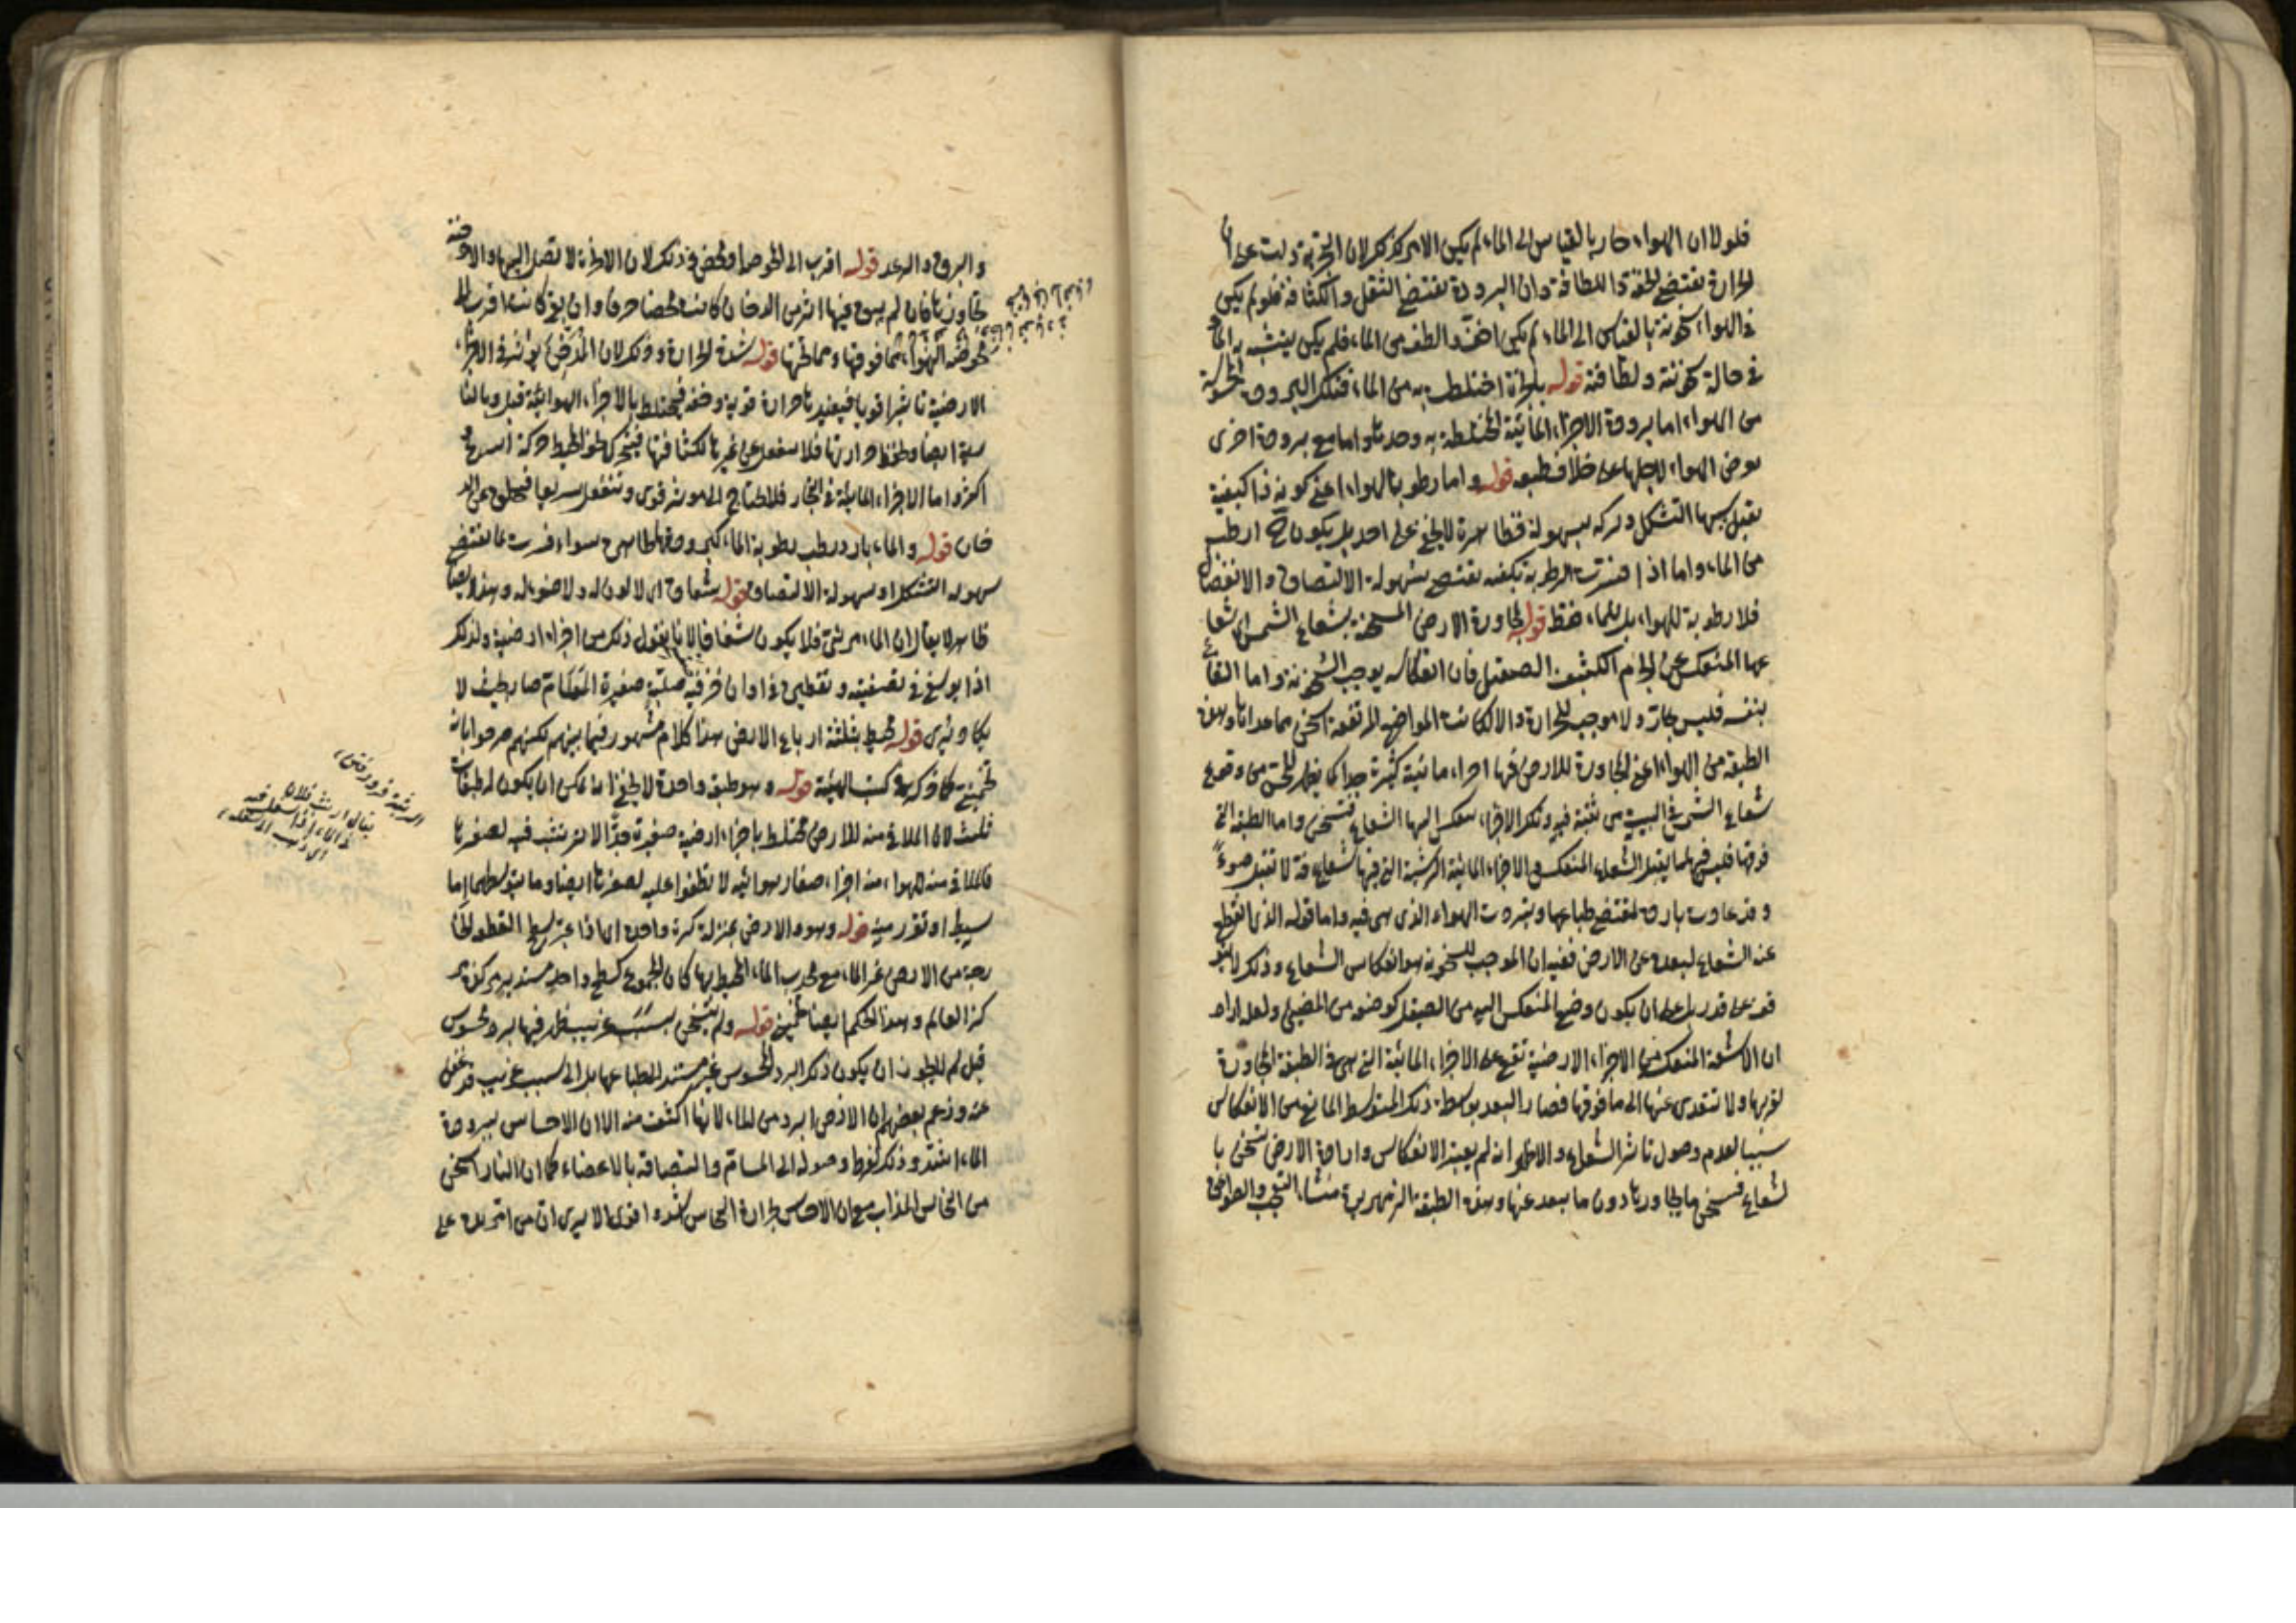 فلولا ان الهواء حار بالقياس الى الماء لم يكن الامر كذلك لان التجربة دلت على ان
الحرارة تقتضى الخفة واللطافة وان البرودة تقتضى الثقل والكثافة فلو لم يكن
فى الهواء سخونة بالقياس الى الماء لم يكن اخف والطف من الماء فلم يكن يتشبه به الماء
فى حالة سخونته ولطافته قوله اختلطت به من الماء فتلك البرودة المحسوسة
من الهواء اما برودة الاجزاء المائية المختلطة به وحدها واما مع برودة اخرى
يعرض الهواء لاجلها على خلاف طبعه قوله واما رطوبة الهواء اعنى كونه ذا كيفية
يقبل بسببها التشكل وتركه بسهولة فظاهرة لا يخفى على احد بل يكون ارطب
من الماء واما اذا فسرت الرطوبة بكيفية تقتضى سهولة الالتصاق والانفصال
فلا رطوبة للهواء بل للماء فقط قوله لمجاورة الارض المسخنة بشعاع الشمس اى شعا
عها المنعكس عن الجرم الكثيف الصقيل فان انعكاسه يوجب السخونة واما الشعاع
بنفسه فليس بحار ولا موجب للحرارة والا لكانت المواضع المرتفعة اسخن مما عداها وهذه
الطبقة من الهواء اعنى المجاورة للارض فيها اجزاء مائية كثيرة جدا كما يظهر للحس من وقوع
شعاع الشمس فى البيت من ثقبة فيه وتلك الاجزاء ينعكس اليها الشعاع فتسخن واما الطبقة التى
فوقها فليس فيها ما يقبل الشعاع المنعكس والاجزاء المائية الرشية التى فيها شفافة لا تقبل ضوءً
وقد عادت باردة بمقتضى طباعها وبردت الهواء الذى هى فيه واما قوله الذى انقطع
عنه الشعاع لبعده عن الارض ففيه ان الموجب للسخونة هو انعكاس الشعاع وذلك لا يتو
قف على قدر بل على ان يكون وضع المنعكس اليه من الصقيل كوضعه من المضيئ ولعله اراد
ان الاشعة المنعكسة من الاجزاء الارضية تقع على الاجزاء المائية التى هى فى الطبقة المجاورة
لقربها ولا تتعدى عنها الى ما فوقها فصار البعد بواسطة ذلك المتوسط المانع من الانعكاس
سببا لعدم وصول تاثير الشعاع والاظهر انه لم يعتبر الانعكاس واراد ان الارض تسخن با
لشعاع فتسخن ما يجاورها دون ما يبعد عنها وهذه الطبقة الزمهريرية منشاء السحب والصواعق
والبروق والرعد قوله اقرب الى الخلوص او محض وذلك لان الادخنة لا تصل اليها والابخرة
تجاوزها فان لم يبق فيها اثر من الدخان كانت محضا صرفا وان بقى كانت اقرب الى
مما فوقها ومما تحتها قوله شدة الحرارة وذلك لان المسخن يؤثر فى الاجزاء
الارضية تاثيرا قويا فيفيدها حرارة قوية وخفة فيختلط بالاجزاء الهوائية قبل وبالنا
رية ايضا وتحفظ حرارتها فلا تنفعل عن غيرها لكثافتها فيتحرك نحو المحيط حركة اسرع و
اكثر واما الاجزاء المائية فى البخار فلا تحتاج الى مؤثر قوى وتنفعل سريعا
خان قوله والماء بارد رطب رطوبة الماء كبرودته ظاهرة سواء فسرت بما يقتضى
سهولة التشكل او سهولة الالتصاق قوله شفاف اى لا لون له ولا ضوء له وهذا ايضا
ظاهر لا يقال ان الماء مرئى فلا يكون شفافا لانا نقول ذلك من اجزاء ارضية ولذلك
اذا بولغ فى تصفيته وتقطيره فى اوان خزفية صلبة صغيرة المسامات صار بحيث لا
يكاد يرى قوله محيط بثلثة ارباع الارض هذا كلام مشهور فيما بينهم لكنهم صرحوا بانه
تخمينى كما ذكره فى كتب الهيئة قوله وهو طبقة واحدة لا يخفى انه يمكن ان يكون له طبقات
ثلث لان الملاقى منه للارض مختلط باجزاء ارضية صغيرة جدًّا لا ترسب فيه لصغرها
والملاقى منه للهواء فيه اجزاء صغار هوائية لا تطفوا عليه لصغرها ايضا وما يتوسطهما اما
بسيط او تقرر منه قوله وهو والارض بمنزلة كرة واحدة اى اذا اعتبر سطح القطع الخا
رجة من الارض عن الماء مع محدب الماء المحيط بها كان المجموع كسطح واحد مستدير مركزه مر
كز العالم وهذا الحكم ايضا تخمينى قوله ولم يتسخن بسبب غريب ظهر فيها برد محسوس
قيل لم لا يجوز ان يكون ذلك البرد المحسوس غير مستند الى طباعها بل الى سبب غريب قد غفل
عنه وزعم بعضهم ان الارض ابرد من الماء لانها اكثف منه الا ان الاحساس ببرودة
الماء اشد وذلك لفرط وصوله الى المسام والتصاقه بالاعضاء كما ان النار اسخن
من النحاس المذاب مع ان الاحساس بحرارة النحاس اشد الا يرى ان من امر يده على